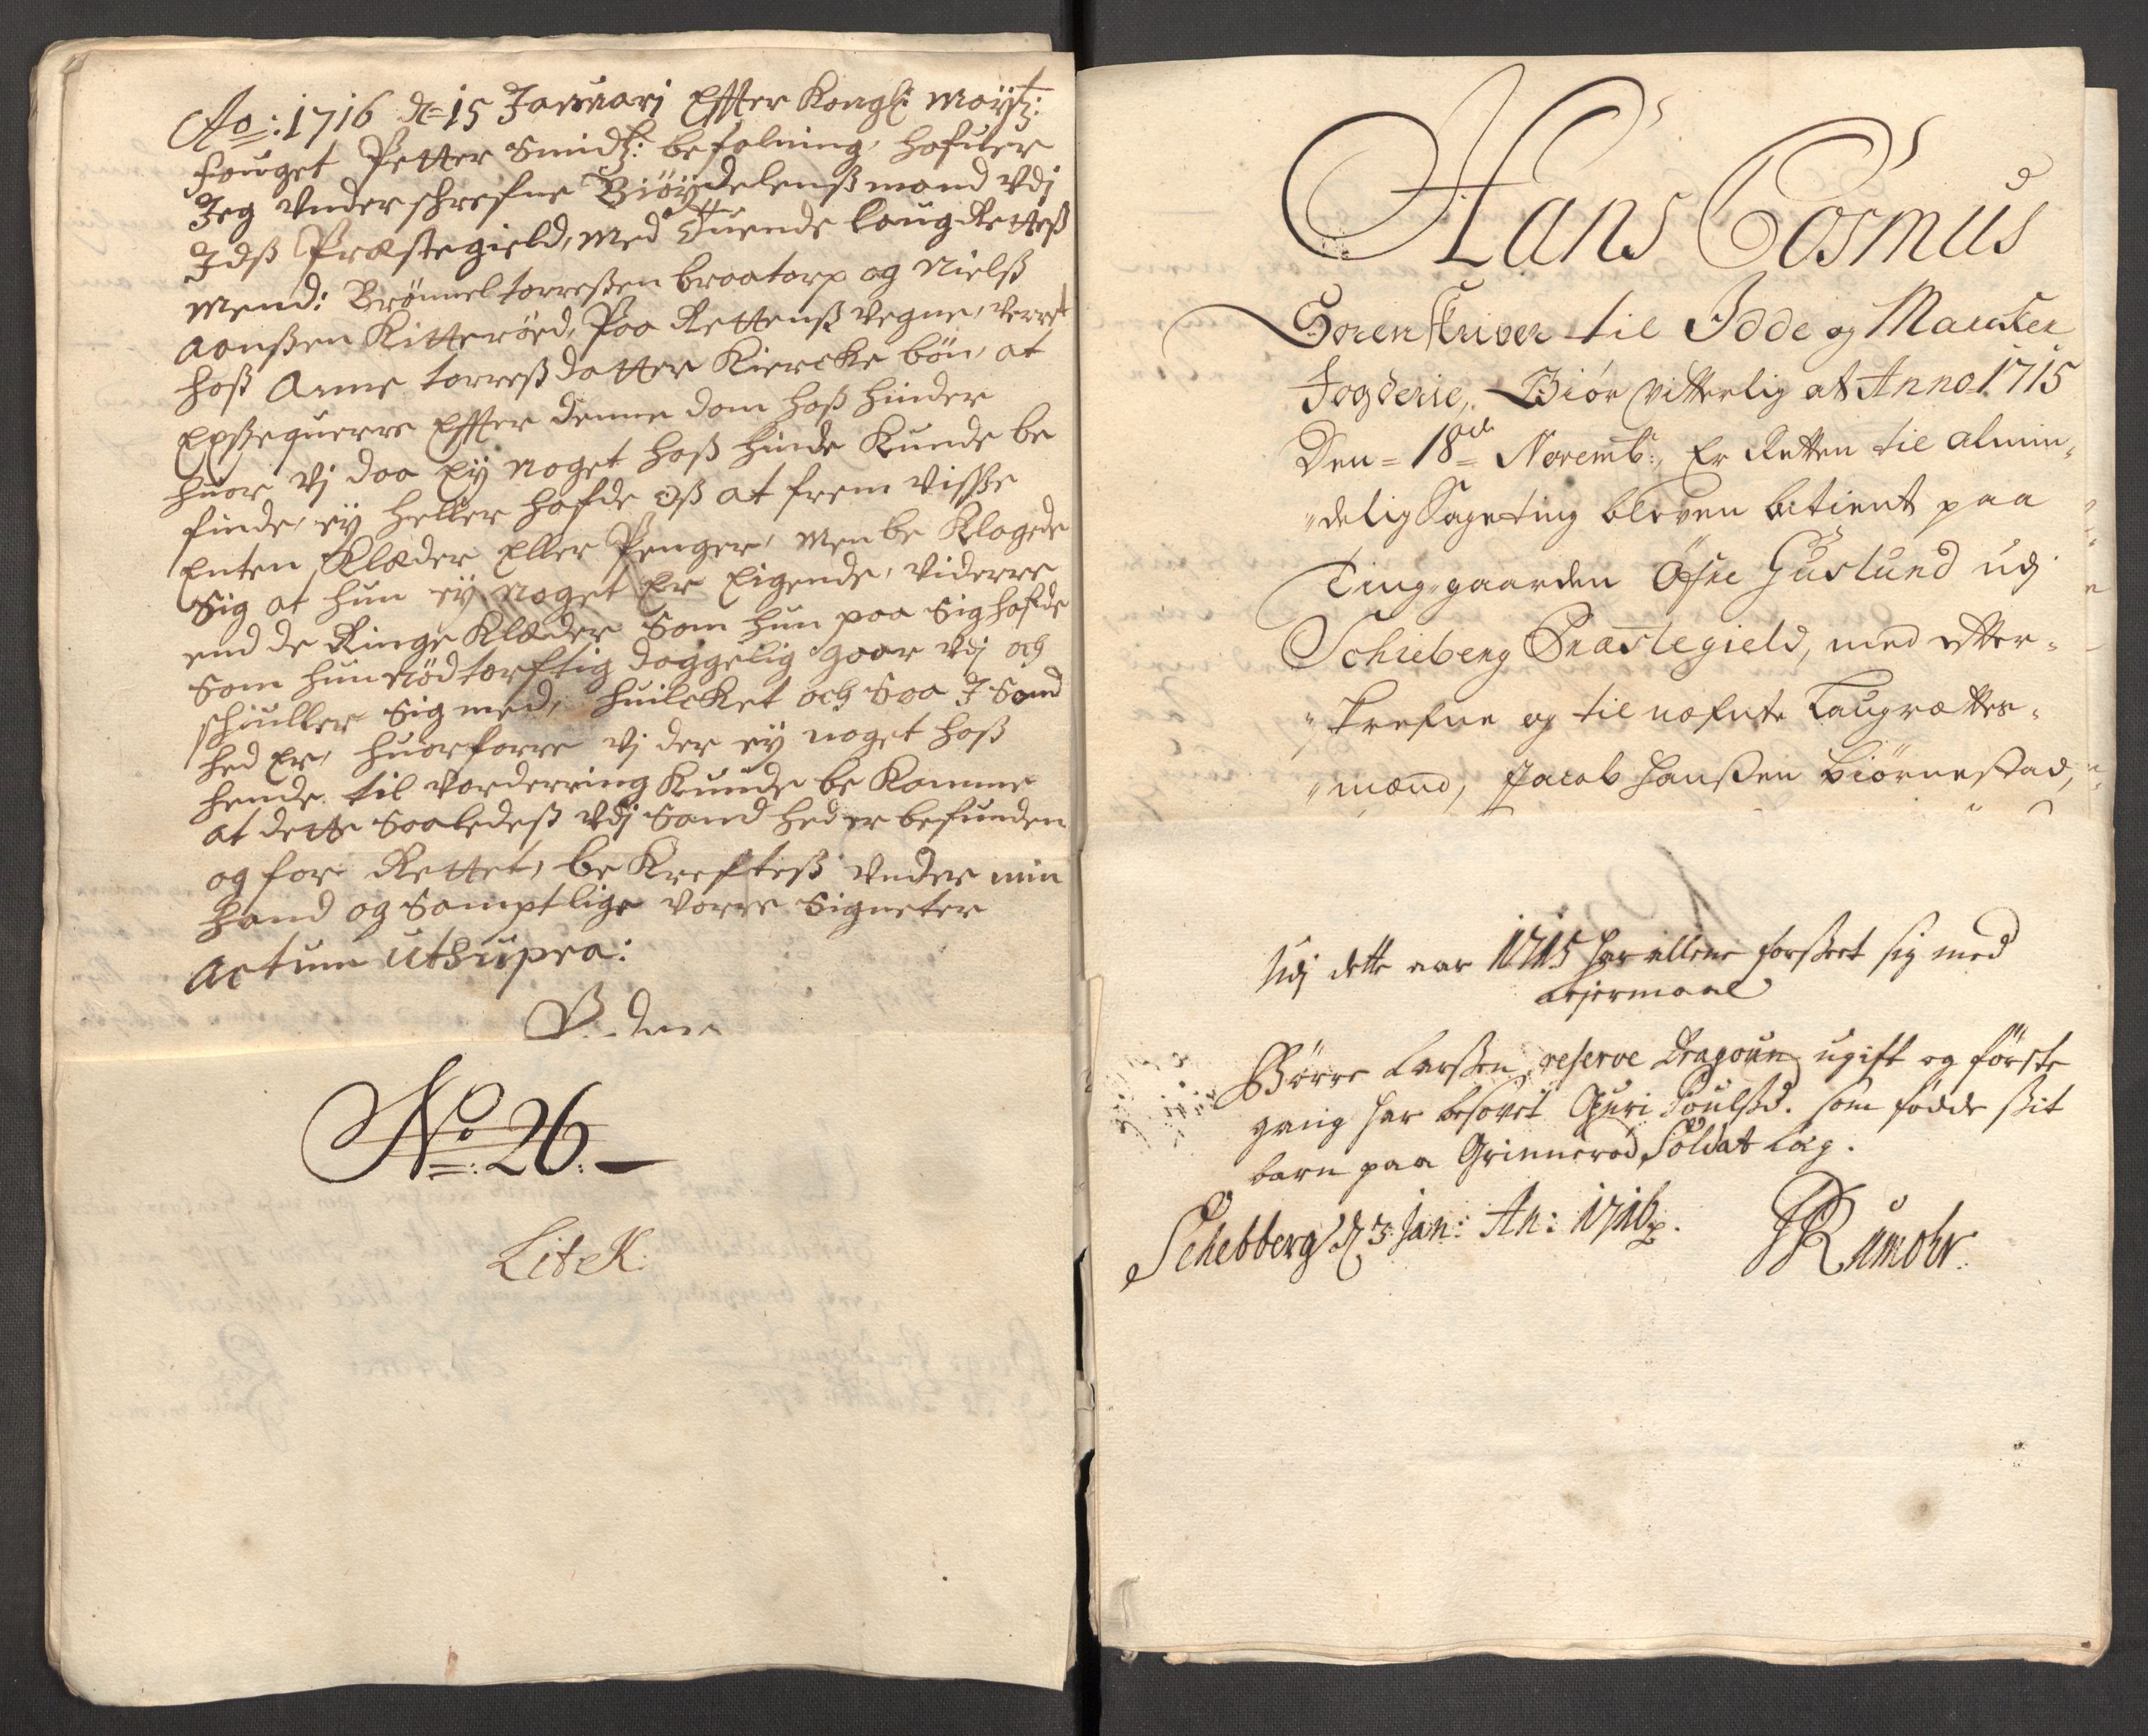 Ao: 1716 d= 15 Januarj Effter Kongl: Maytz:
fouget Petter Smidtz: befalning, hafuer
Jeg Vnderschrefne Biøydelenssmand Vdj
Idss Præstegield, med tuende laug Rettess
mend: Brønnel torressen braatorp og Nielss
aanssen Kitterøed, Paa Rettenss Vegne, Verret
hoss Anne torressdatter Kiercke bøn, at
Expsequerre Effter denne dom hoss hinder
huor Vj daa Ey noget hoss hinde Kunde be
finde, ey heller hafde oss at frem Visse
Enten Klæder Eller Penger, men be Klagede
Sig at hun ey noget Er Eigende, Viderre
end de Ringe Klæder Som hun paa Sig hafde
Som hun Nødtorftig daggelig gaar Vdj och
schiuller Sig med, huilcket och Saa J Sand
hed Er, huorforre Vj der ey noget hoss
hende til Vorderring Kunde be Komme
at dette Saaledess Vdj Sand hed er befunden
og for Rettet, be Krefftess Vnder min
Hand og Samptlige Vorre Signeter
Actum utsupra:
No: 26.
Lit K:
Hans Cosmus
Sorenskriver til Idde og Marcker
Fogderie, Giør Vitterlig at Anno 1715
Den = 18de Novemb: Er Retten til almin-
delig Sageting bleven betient paa
Ting-gaarden Øfre Huslund udj
Schieberg Præstegield, med efter-
skrefne og til næfnte Laugrættes-
mænd, Jacob Hanssen Biørnestad,
Udj dette aar 1715 har allene forsseet sig med
Leyermaal
Børre Larssen, reserve Dragoun ugift og første
gang har besovet Guri Poulssd. som fødde ssit
barn paa Grimmerød Soldat Lag.
Schebberg d 3 Jan: An: 1716.
Rumohr.